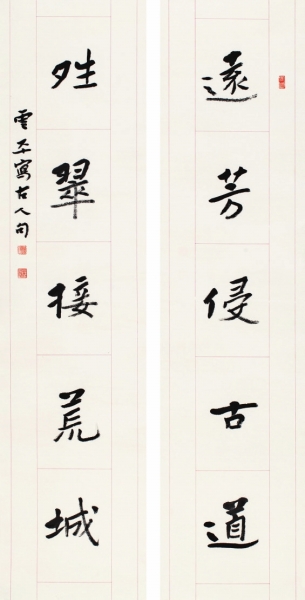 遠芳侵古道
夝翠接荒城
雲 寫古人句